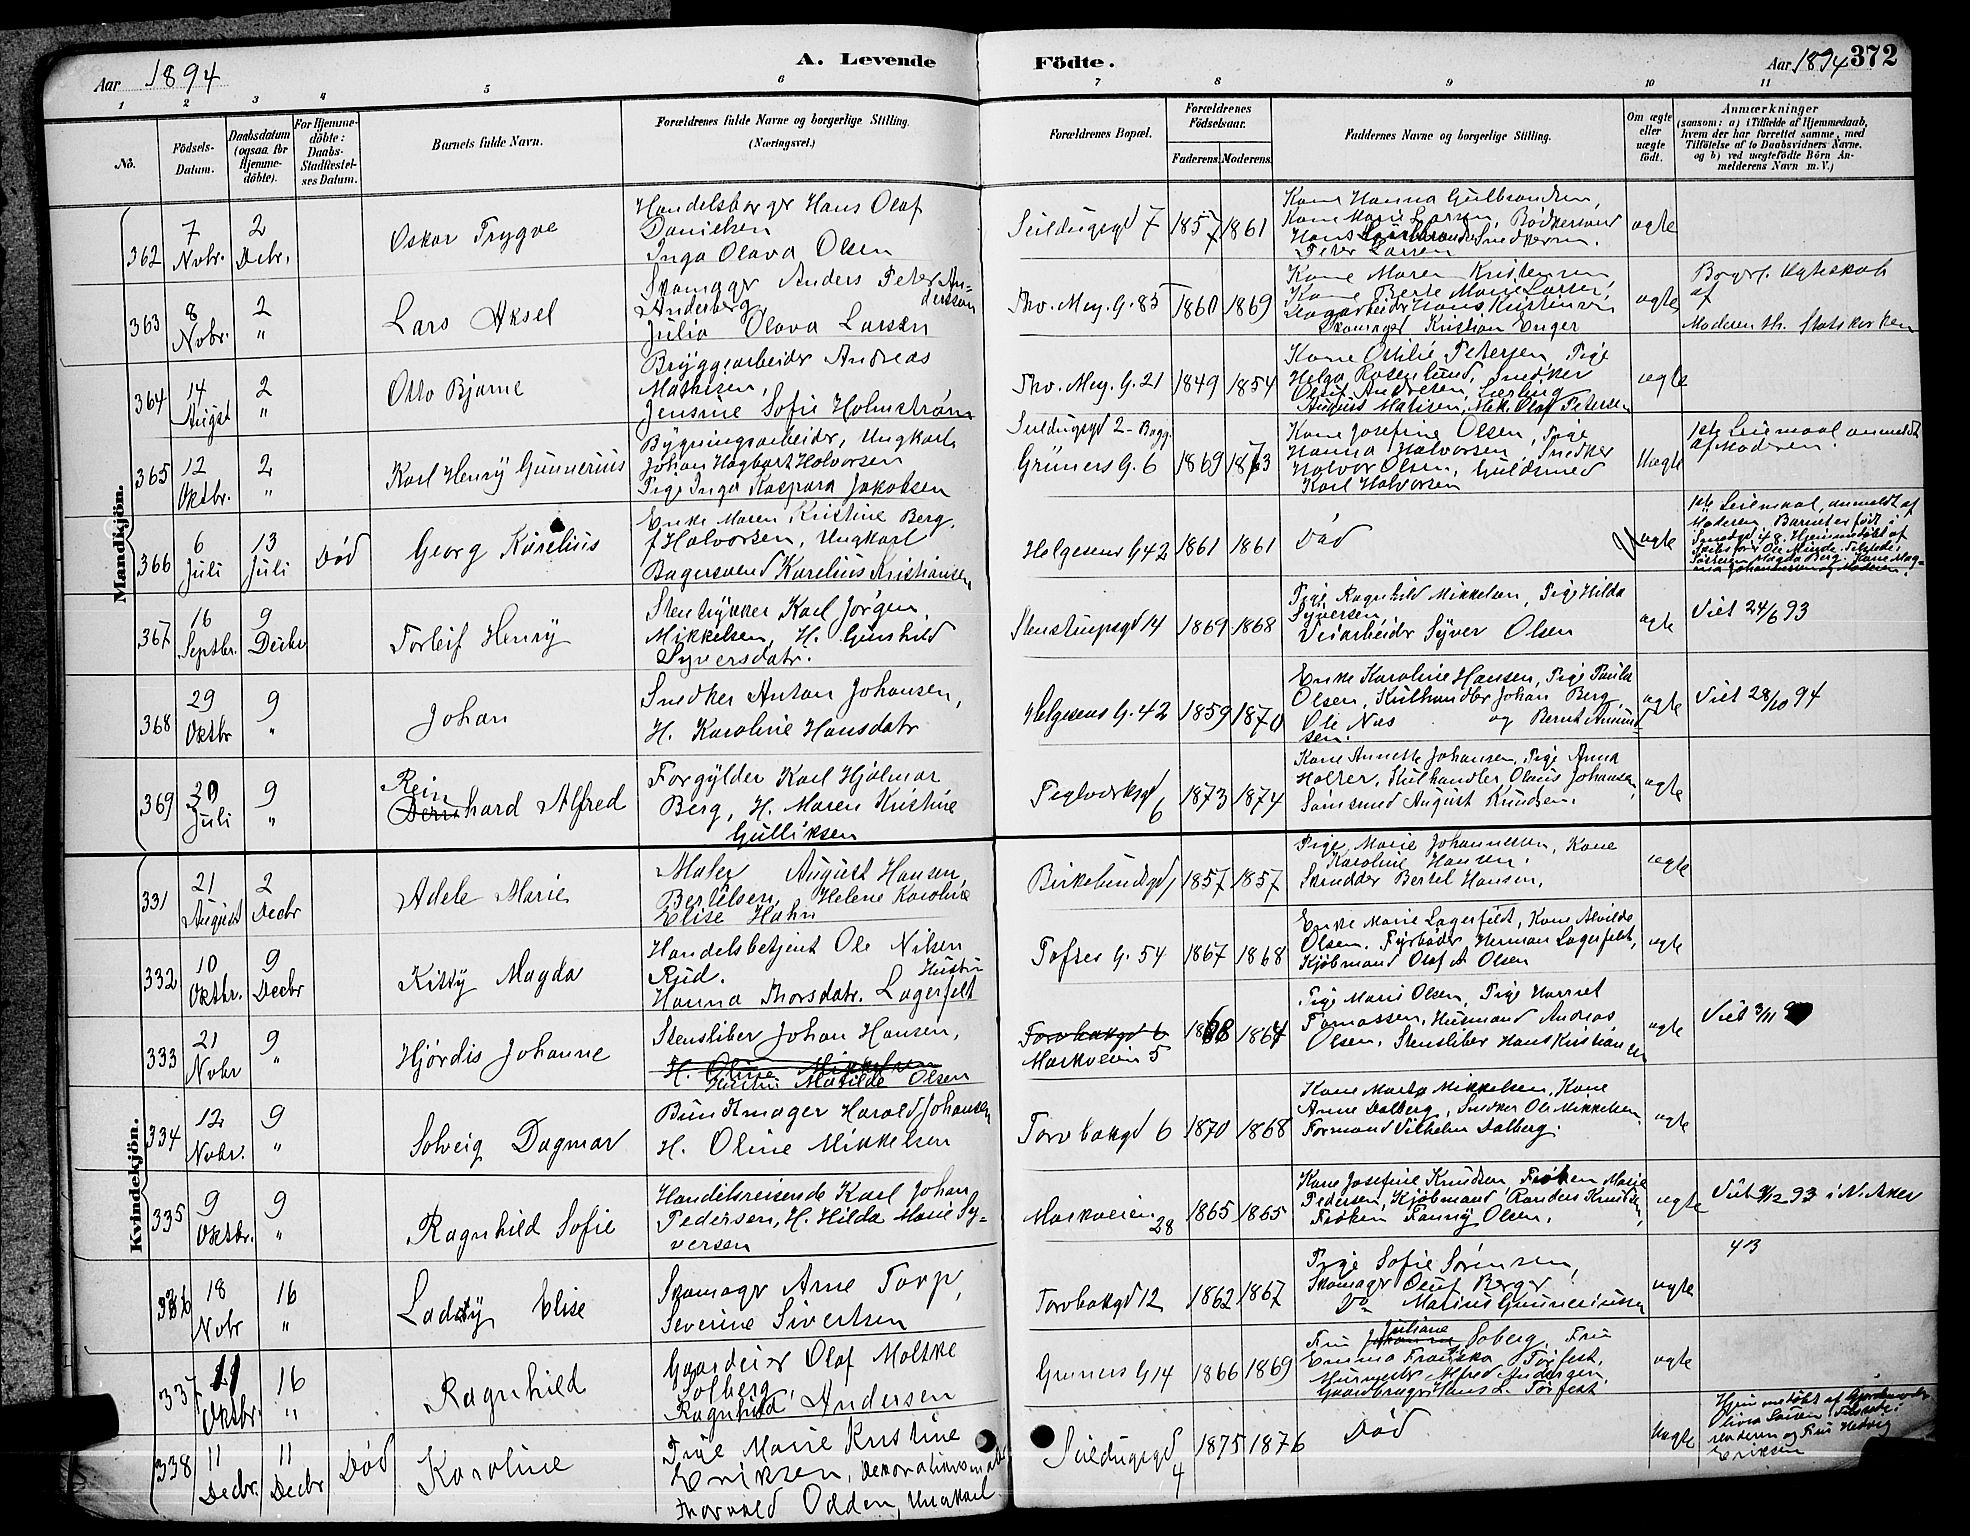 Aar 1894
A. Levende Födte.
Aar 1894 372
1 2 3 4 5 6 7 8 9 10 11
Nô.
Födsels-Datum.
Daabsdatum (ogsaa for Hjemme-döbte).
For Hjemme-döbte: Daabs-Stadfæstel-ses Datum.
Barnets fulde Navn.
Forældrenes fulde Navne og borgerlige Stilling. (Næringsvei.)
Forældrenes Bopæl.
Forældrenes Födselsaar.
Faderens. Moderens.
Faddernes Navne og borgerlige Stilling.
Om ægte eller uægte födt.
Anmærkninger
(saasom: a) i Tilfælde af Hjemmedaab, hvem der har forrettet samme, med Tilföielse af to Daabsvidners Navne. og b) ved uægtefödte Börn An-melderens Navn m. V.)
Mandkjön.
362 7 Novbr. 2 Decbr. Oskar Trygve
Handelsborger Hans Olaf
Danielsen
Inga Olava Olsen
Seildugsgd 7 1857 1861
Kone Hanna Gulbrandsen,
Kone Marie Larsen, Bødkersvend
Hans Gulbrandsen Snedkersv.
Peter Larsen
ægte
363 8 Novbr. 2 " Lars Aksel
Skomager Anders Peter An-
Anderberg dersson
Julia Olava Larsen
Thv. Mey. G. 85 1860 1869
Kone Maren Kristensen
Kone Berte Marie Larsen,
Dagarbeider Hans Kristensen
Skomager Kristian Enger
ægte
Borgerl. Egteskab
af
Moderen th. Statskirken
364 14 August 2 " Otto Bjarne
Bryggearbeider Andreas
Mathisen,
Jensine Sofie Holmstrøm
Thv. Mey. G. 21 1849 1854
Kone Ottilie Petersen, Pige
Helga Rosenlund, Snedker
Oluf Andresen, Lærling
August Matisen, Mek. Olaf Petersen
ægte
365 12 Oktbr. 2 " Karl Henry Gunnerius
Bygningsarbeider, Ungkarl
Johan Hagbart Halvorsen
Pige Inga Kaspara Jakobsen
Seildugsgd 2 - Bagg.
Grüners G. 6 1869 1873
Kone Josefine Olsen, Pige
Hanna Halvorsen, Snedker
Halvor Olsen, Guldsmed
Karl Halvorsen
Uægte
1ste Leiermaal anmeldt
af Moderen
366 6 Juli 13 Juli Död Georg Karelius
Enke Maren Kristine Berg,
f Halvorsen, Ungkarl
Bagersvend Karelius Kristiansen
Helgesens G 42 1861 1861
Död
Uægte
1ste Leiermaal, anmeldt af
Moderen. Barnet er født i
367 16 Septbr. 9 Decbr Torleif Henry
Stentrykker Karl Jørgen
Mikkelsen, H. Gunhild
Syversdatr.
Stenstrupsgd 14 1869 1868
Pige Ragnhild Mikkelsen, Pige Hilda
Syversen,
Veiarbeider Syver Olsen
ægte
Viet 24/6 93
368 29 Oktbr 9 " Johan
Snedker Anton Johansen,
H. Karoline Hansdatr
Helgesens G. 42 1859 1870
Enke Karoline Hansen, Pige Paula
Olsen, Kulhandler Johan Berg,
Ole Næs og Bernt Amund-
sen.
ægte
Viet 28/10 94
369 20 Juli 9 "
Rein
Bernhard Alfred
Forgylder Karl Hjalmar
Berg, H. Maren Kristine
Gulliksen
Teglverksgd
6
1873 1874
Kone Annette Johansen, Pige Anna
Holter, Kulhandler Olaus Johansen,
Sømsmed August Knudsen.
ægte
Kvindekjön.
331 21 August 2 Decbr Adele Marie
Maler August Hansen,
Bertelsen, Helene Karoline
Elise Hahn
Birkelundsgd 1 1857 1857
Pige Marie Johannesen, Kone
Karoline Hansen,
Skrædder Bertel Hansen,
ægte
332 10 Oktbr. 9 Decbr Kitty Magda
Handelsbetjent Ole Nilsen
Rud. Hustru
Hanna Thorsdatr. Lagerfelt
Toftes G. 54 1867 1868
Enke Marie Lagerfeldt, Kone Alvilde
Olsen. Fyrbøder Herman Lagerfelt,
Kjøbmand Olaf A Olsen
ægte
333 21 Novbr 9 " Hjördis Johanne
Stensliber Johan Hansen,
H. Oline Mikkelsen
Hustru Matilde Olsen
Torvbakgd 6
Markveien 5
1868 1864
Pige Marie Olsen, Pige Harriet
Tomassen, Husmand Andreas
Olsen, Stensliber Hans Kristiansen
ægte
Viet 3/11
334 12 Novbr. 9 " Solveig Dagmar
Bundtmager Harald Johansen
H. Oline Mikkelsen
Torvbakgd 6 1870 1868
Kone Marta Mikkelsen, Kone
Anne Dalberg, Snedker Ole Mikkelsen,
Formand Vilhelm Dalberg.
ægte
335 9 Oktbr. 9 " Ragnhild Sofie
Handelsreisende Karl Johan
Pedersen, H. Hilda Marie Sy-
versen
Markveien
28
1865 1865
Kone Josefine Knudsen, Frøken Marie
Pedersen, Kjøbmand Randers Knudsen,
Frøken Fanny Olsen.
ægte
Viet 3/12 93 i N. Aker
336 18 Novbr 16 " Laddy Elise
Skomager Arne Torp,
Severine Sivertsen
Torvbakgd 12 1862 1867
Pige Sofie Sørensen,
Skomager Oluf Berger
Do Matius Gunneriussen
ægte
4B
337 21 Oktbr. 16 " Ragnhild
Gaardeier Olaf Moltke
Solberg,
Ragnhild Andersen
Gruners G 14 1866 1869
Juliane
Fru Johanne Soberg, Fru
Emma Franziska Torfest,
Murmester Alfred Andersen,
Gaardbruger Hans L. Torfest
ægte
338 11 Decbr. 11 Decbr Död Karoline
Pige Marie Kristine
Eriksen, Dekorationsmaler
Thorvald Odden, Ungkarl
Seildugsgd
4
1875 1876
Död
Uægte
Hjemmedøbt af Gjordemoder
Olivia Larsen, Tilstede:
Moderen og Fru Hedvig
Eriksen